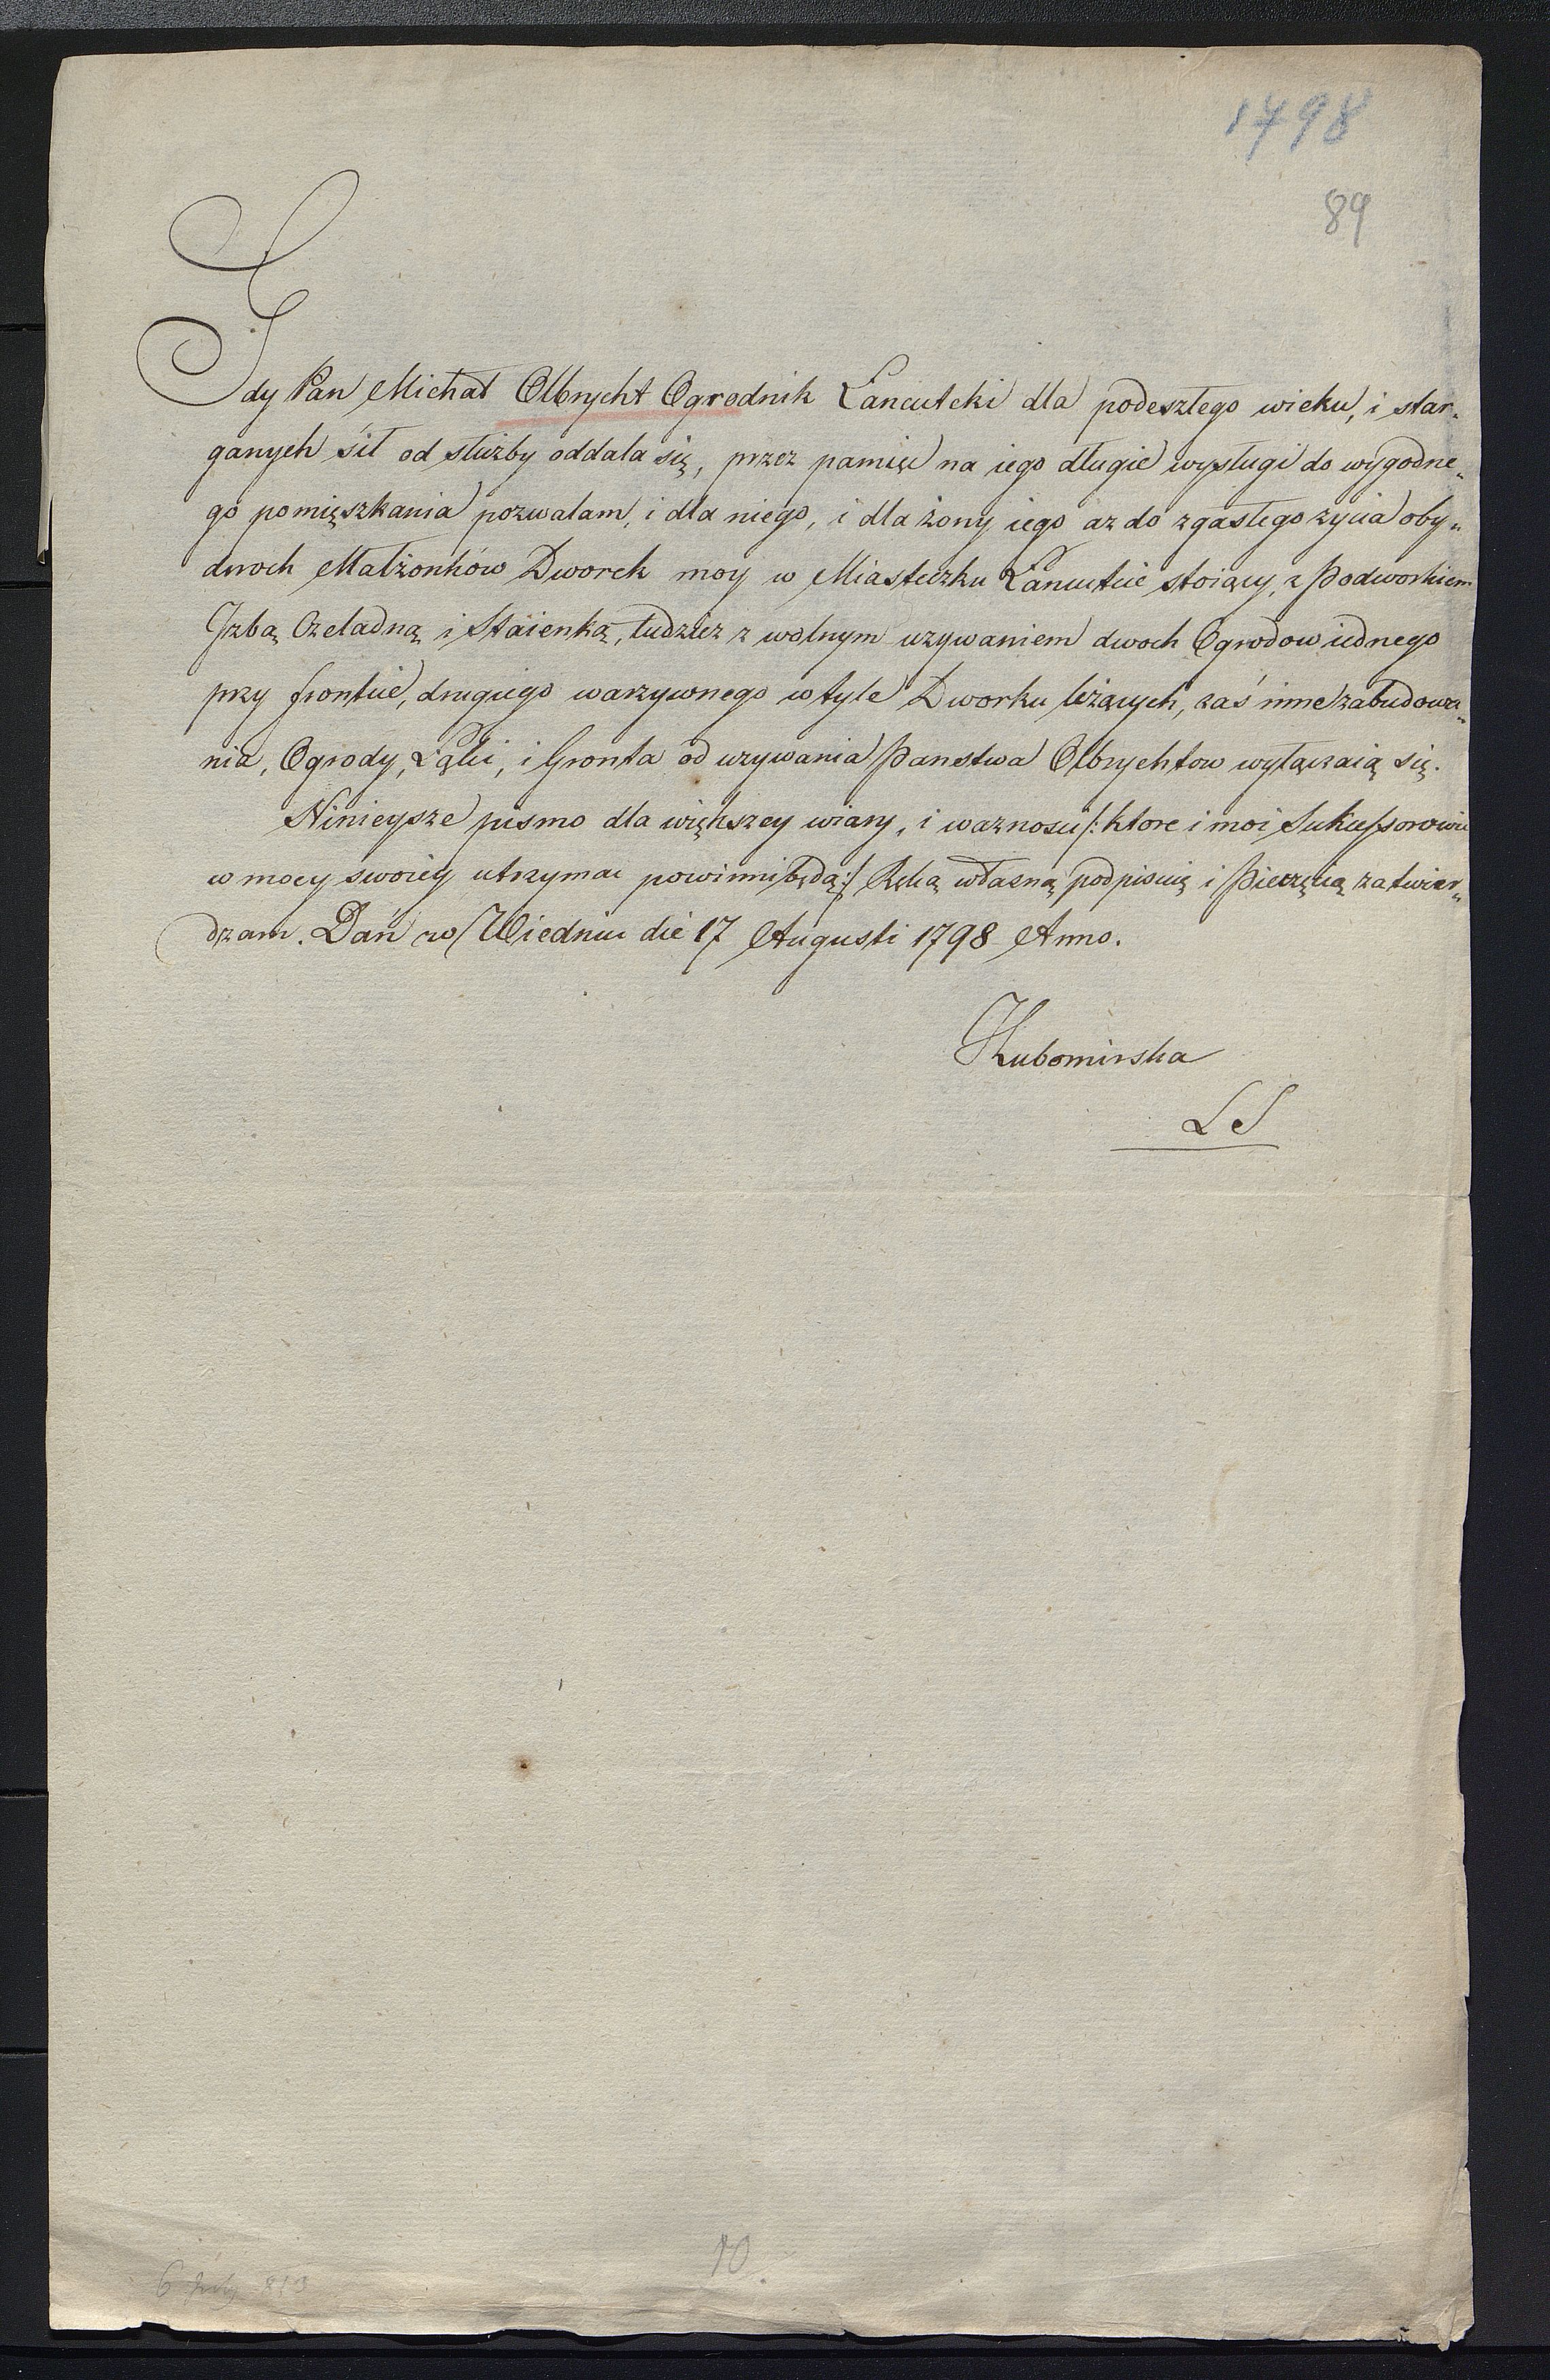 1798
89
Gdy Pan Michał Olbrycht Ogrodnik Łancutcki dla podeszłego wieku, i star„
ganych sił od służby oddala się, przez pamięć na iego długie wysługi do wygodne„
go pomięszkania pozwalam, i dla niego, i dla żony iego az do zgasłego zycia oby„
dwoch Małżonków Dworek moy w Miasteczku Łancucie stoiący, z Podworkiem
Jzbą Czeladną i Staienką, tudziez z wolnym uzywaniem dwoch Ogrodow iednego
przy froncie, drugiego warzywnego w tyle Dworku leżących, zaś inne zabudowa„
nia, Ogrody, Łąki, i Gronta od uzywania Panstwa Olbrychtow wyłączaią się.
Ninieysze pismo dla większey wiary, i waznosci /: ktore i moi Sukcessorowie
w mocy swoiey utrzymac powinni będą :/ Ręką własną podpisuię i Pieczęcią zatwier„
dzam. Dań w Wiedniu die 17 Augusti 1798 Anno.
Lubomirska
LS
10.
6 July 813